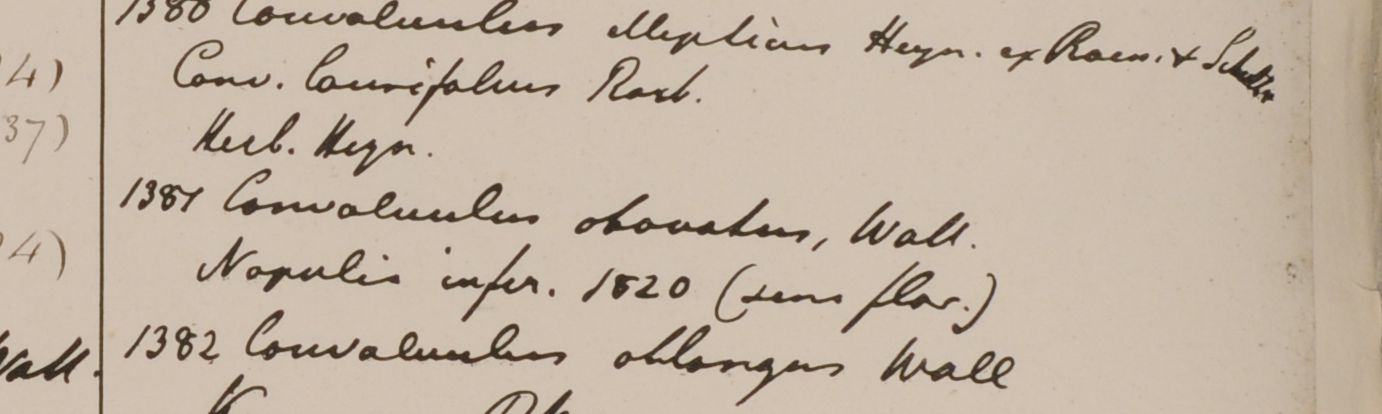 1380 Convolvulus ellipticus Heyn. ex Roem. & Schult
4)
Conv. laurifolius Roxb.
37)
Herb. Heyn.
1381 Convolvulus obovatus, Wall.
4)
Napulia infer. 1820 (sine flor.)
Wall.
1382 Convolvulus oblongus Wall